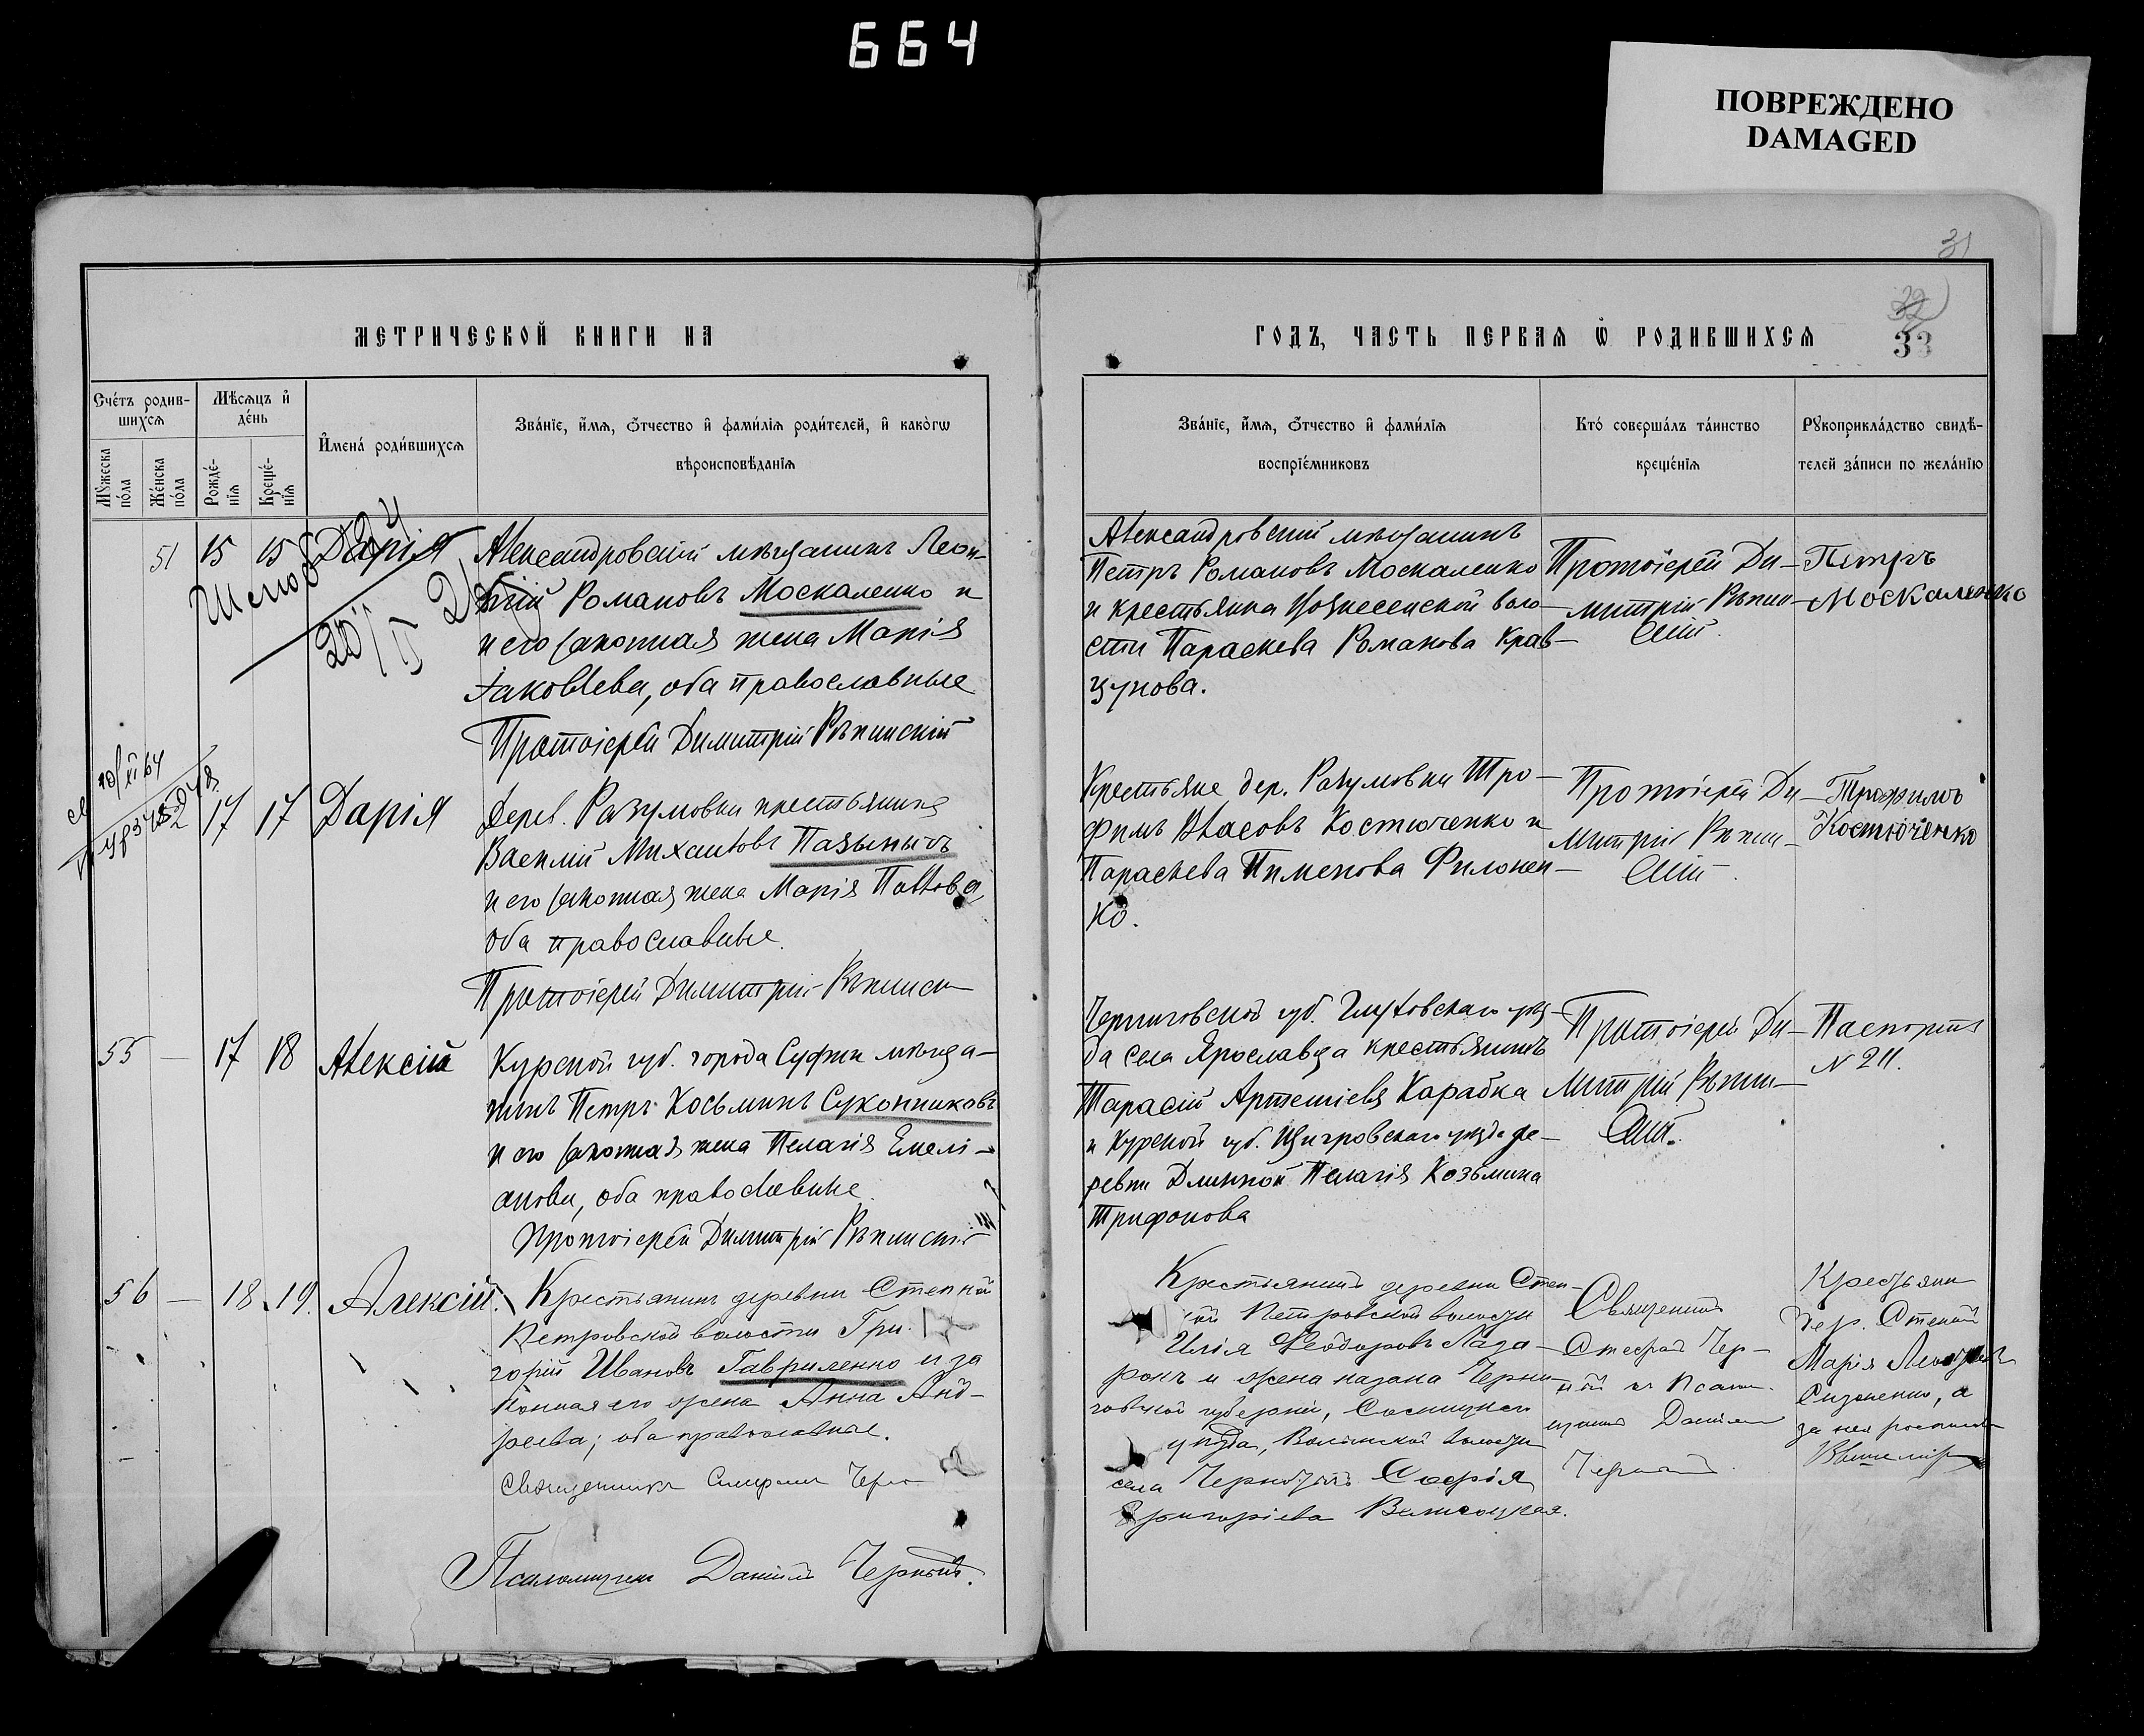 664
ПОВРЕЖДЕНО
DAMAGED
31
32
33
МЕТРИЧЕСКОЙ КНИГИ НА
ГОДЪ, ЧАСТЬ ПЕРВАЯ Ѡ РОДИВШИХСЯ
Счéтъ родив-
шихся
Мѣсяцъ и
дéнь
Мýжеска
пóла
Жéнска
пóла
Рождé-
нія
Крещé-
нія
Именá родúвшихся
Звáніе, úмя, óтчество и фамúлія родúтелей, и какóгѡ
вѣроисповѣданія
Звáніе, úмя, óтчество и фамúлія
воспріéмниковъ
Ктó совершáлъ тáинство
крещéнія
Рукоприклáдство свидѣ-
телей зáписи по желáнію
51 15 15 Дарія
Александровскій мѣщанинъ Леон-
тій Романовъ Москаленко и
и его законная жена Марія
Іаковлева, оба православные
Протоіерей Димитрій Рѣпинскій
Александровскій мѣщанинъ
Петръ Романовъ Москаленко
и крестьянка Вознесенской воло-
сти Параскева Романова Крав-
цунова.
Протоіерей Ди-
митрій Рѣпин-
скій.
Петръ
Москаленко
10/XI 64
17 17 Дарія
Дерев. Разумовки крестьянинъ
Василій Михаиловъ
и его законная жена Марія Павлова,
оба православные.
Протоіерей Димитрій Рѣпинск
Крестьяне дер. Разумовки Тро-
фимъ Власовъ Костюченко и
Параскева Пименова Филонен-
ко.
Протоіерей Ди-
митрій Рѣпин-
скій.
Трофимъ
Костюченко
55 — 17 18 Алексій
Курской губ. города Суджи мѣща-
нинъ Петръ Косьминъ Суконниковъ
и его законная жена Пелагія Емелі-
анова, оба православные.
Протоіерей Димитрій Рѣпинскій
Черниговской губ. Глуховскаго уѣз-
да села Ярославца крестьянинъ
Тарасій Артеміевъ Карабка
и Курской губ. Щигровскаго уѣзда де-
ревни Длинной Пелагія Козьмина
Трифонова
Протоіерей Ди-
митрій Рѣпин-
скій.
Паспортъ
N 211.
56 — 18 19. Алексій.
Крестьянинъ деревни Степной
Петровской волости Гри-
горій Ивановъ Гавриленко и за
конная его жена Анна Анд-
реева; оба православные.
Священникъ
Псаломщикъ Даніилъ Черный.
Крестьянинъ деревни Степ-
ной Петровской волости
Илія Ѳеодоровъ Лаза-
и жена казака Черни-
говской губерніи, Сосницкаго
уѣзда, волости
села София
Григоріева
Священникъ
Чер-
ный и Псалом-
щикъ Даніилъ
Черный.
Крестьянин
дер. Степной
Марія
а
за нея